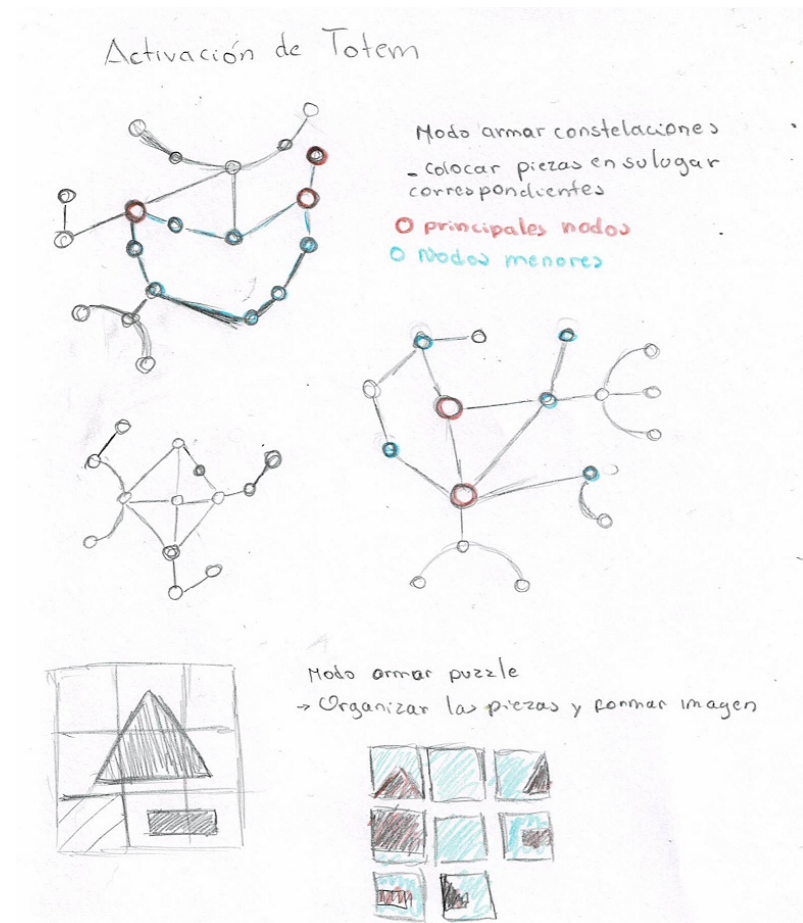 Activación de Totem
Modo armar constelaciones
- Colocar piezas en su lugar
correspondientes
O principales nodos
O Nodos menores
Modo armar puzzle
→ Organizar las piezas y formar imagen